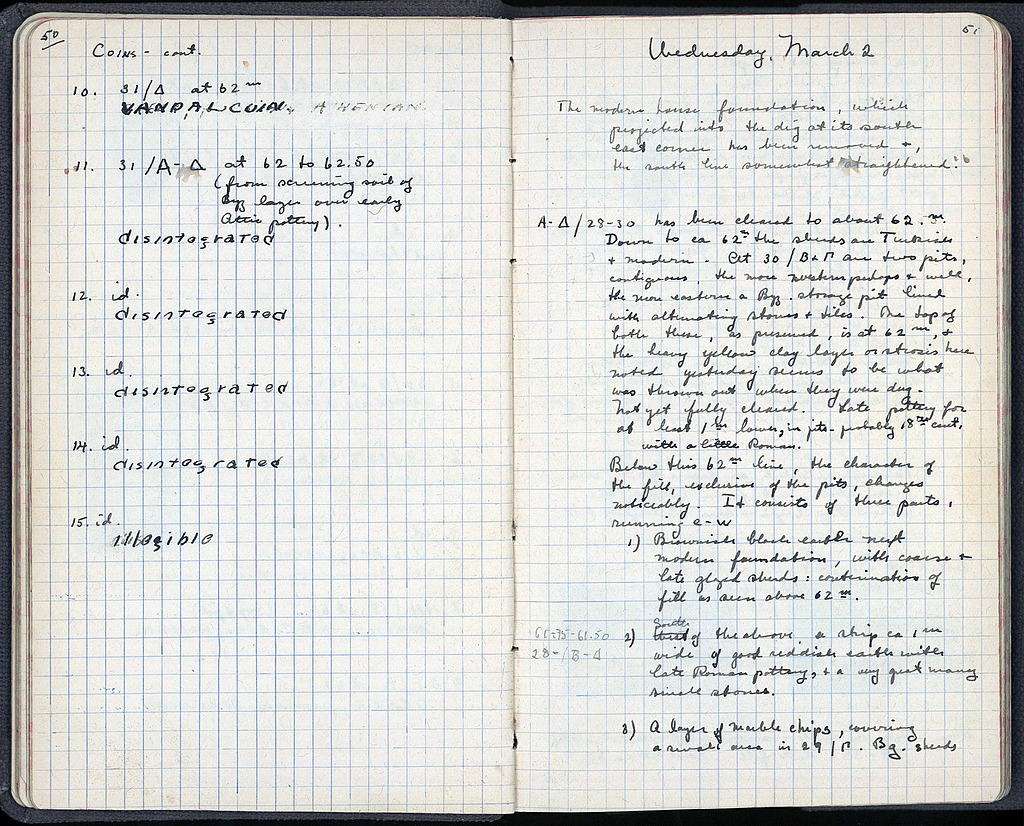 50
COINS - cont.
10. 31/Δ at 62 m
VANDAL COIN. ATHENIAN
11. 31/A-Δ at 62 to 62.50
(from screening soil of
Byz layer over early
Attic pottery).
disintegrated
12. id.
disintegrated
13. id.
disintegrated
14. id.
disintegrated
15. id.
illegible
51
Wednesday, March 2
The modern house foundation, which
projected into the dig at its south
east corner has been removed +,
the south line somewhat straightened.
A-Δ/28-30 has been cleared to about 62.m
Down to ca 62m the sherds are Turkish
+ modern. At 30/B+Γ are two pits,
contiguous, the more western perhaps a well,
the more eastern a Byz. storage pit lined
with alternating stones + tiles. The top of
both these, as preserved, is at 62 m, +
the heavy yellow clay layer or strosis here
noted yesterday seems to be what
was thrown out when they were dug.
Not yet fully cleared. Late pottery for
at least 1m lower, in pits - probably 18th cent.
with a little Roman.
Below this 62m line, the character of
the fill, exclusive of the pits, changes
noticeably. It consists of three parts,
running e-w
1) Brownish black earth next
modern foundation, with coarse +
late glazed sherds: continuation of
fill as seen above 62 m.
61.75-61.50
28-/B-Δ
South
2) of the above, a strip ca 1m
wide of good reddish earth with
late Roman pottery, + a very great many
small stones.
3) A layer of marble chips, covering
a small area in 29/Γ. Bg. sherds